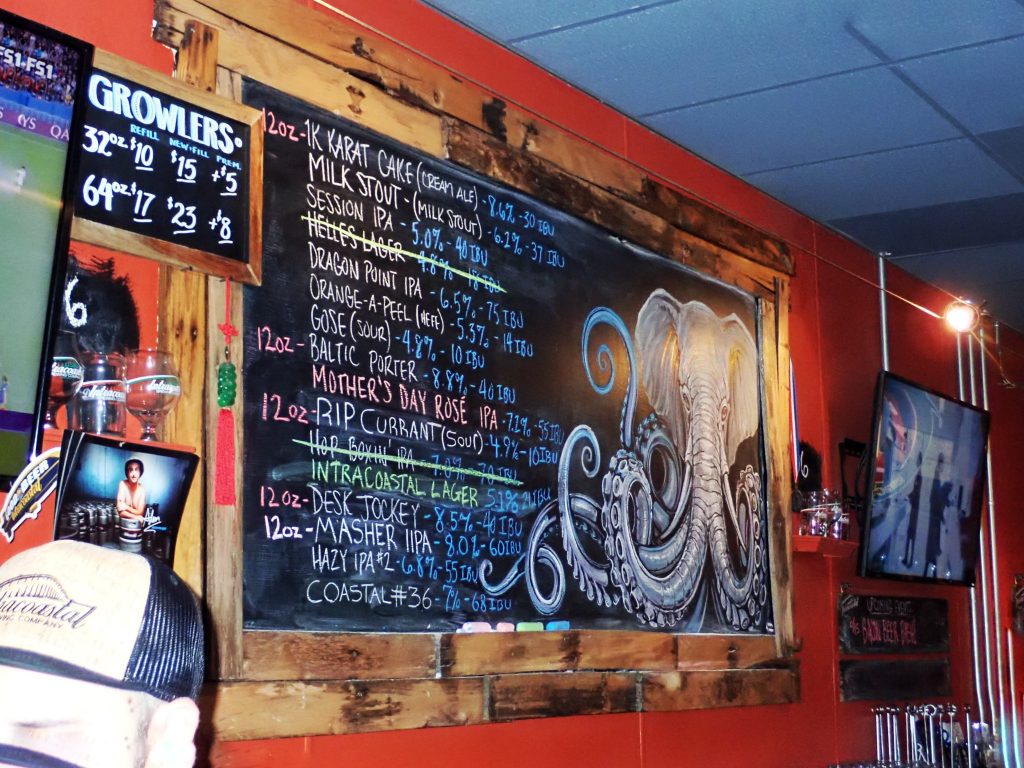 FS1 FS1
GROWLERS.
REFILL NEW+FILL PREM.
32oz. $10 $15 +$5
64oz. $17 $23 +$8
12oz-1K KARAT CAKE (CREAM ALE) - 8.6% - 30 IBU
MILK STOUT - (MILK STOUT) - 6.2% - 37 IBU
SESSION IPA - 5.0% - 40 IBU
HELLES LAGER 4.8% 18 IBU
DRAGON POINT IPA - 6.5% - 75 IBU
ORANGE-A-PEEL (HEFE) - 5.3% - 14 IBU
GOSE (SOUR) - 4.8% - 10 IBU
12oz- BALTIC PORTER - 8.8% - 40 IBU
MOTHER'S DAY ROSE IPA - 7.1% - 55 IBU
12oz-RIP CURRANT (SOUR) - 4.9% - 10 IBU
HOP BOXIN' IPA - 7.0% - 70 IBU
INTRACOASTAL LAGER 5.1% 21 IBU
12oz-DESK JOCKEY - 8.5% - 40 IBU
12oz-MASHER IIPA - 8.0% - 60 IBU
HAZY IPA #2 - 6.8% - 55 IBU
COASTAL #36 - 7% - 68 IBU
6
Intracoastal
BEER
racoastal
WING COMPANY
UPCOMING EVENT
BACON BEER BREW!